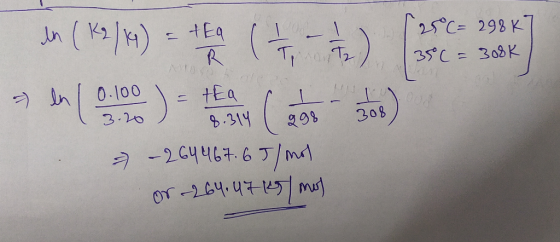 ln (K2/K1) = +Ea/R (1/T1 - 1/T2) [25°C = 298K
35°C = 308K]
⇒ ln (0.100/3.20) = +Ea/8.314 (1/298 - 1/308)
⇒ -264467.6 J/mol
or -264.47 KJ/mol